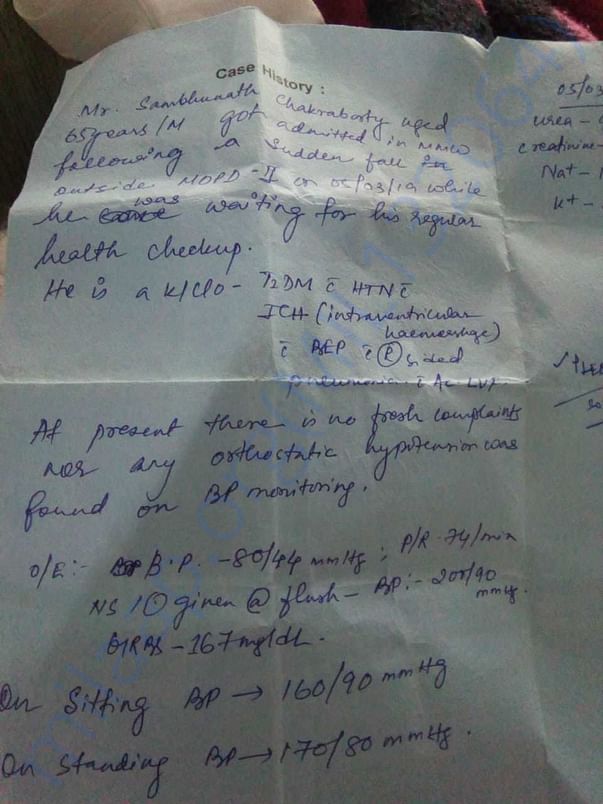 Case History :
Mr. Sambhunath Chakraborty aged
65years/M got admitted in MMW
following a sudden fall
outside MOPD-II on 05/03/19 while
he was waiting for his regular
health checkup.
He is a K/C/O - T2DM c̄ HTN c̄
ICH (intraventricular
haemorrhage)
c̄ BEP c̄ Ⓡ sided
pneumonia c̄ Ac LVF
At present there is no fresh complaints
nor any orthostatic hypotension was
found on BP monitoring.
O/E:- B.P. - 80/44 mmHg ; P/R - 74/min
NS 1 given @ flush - BP:- 200/90
mmHg.
GRBS - 167 mg/dL.
On Sitting BP → 160/90 mmHg
On Standing BP → 170/80 mmHg.
05/03
urea -
creatinine -
Na+ -
K+ -